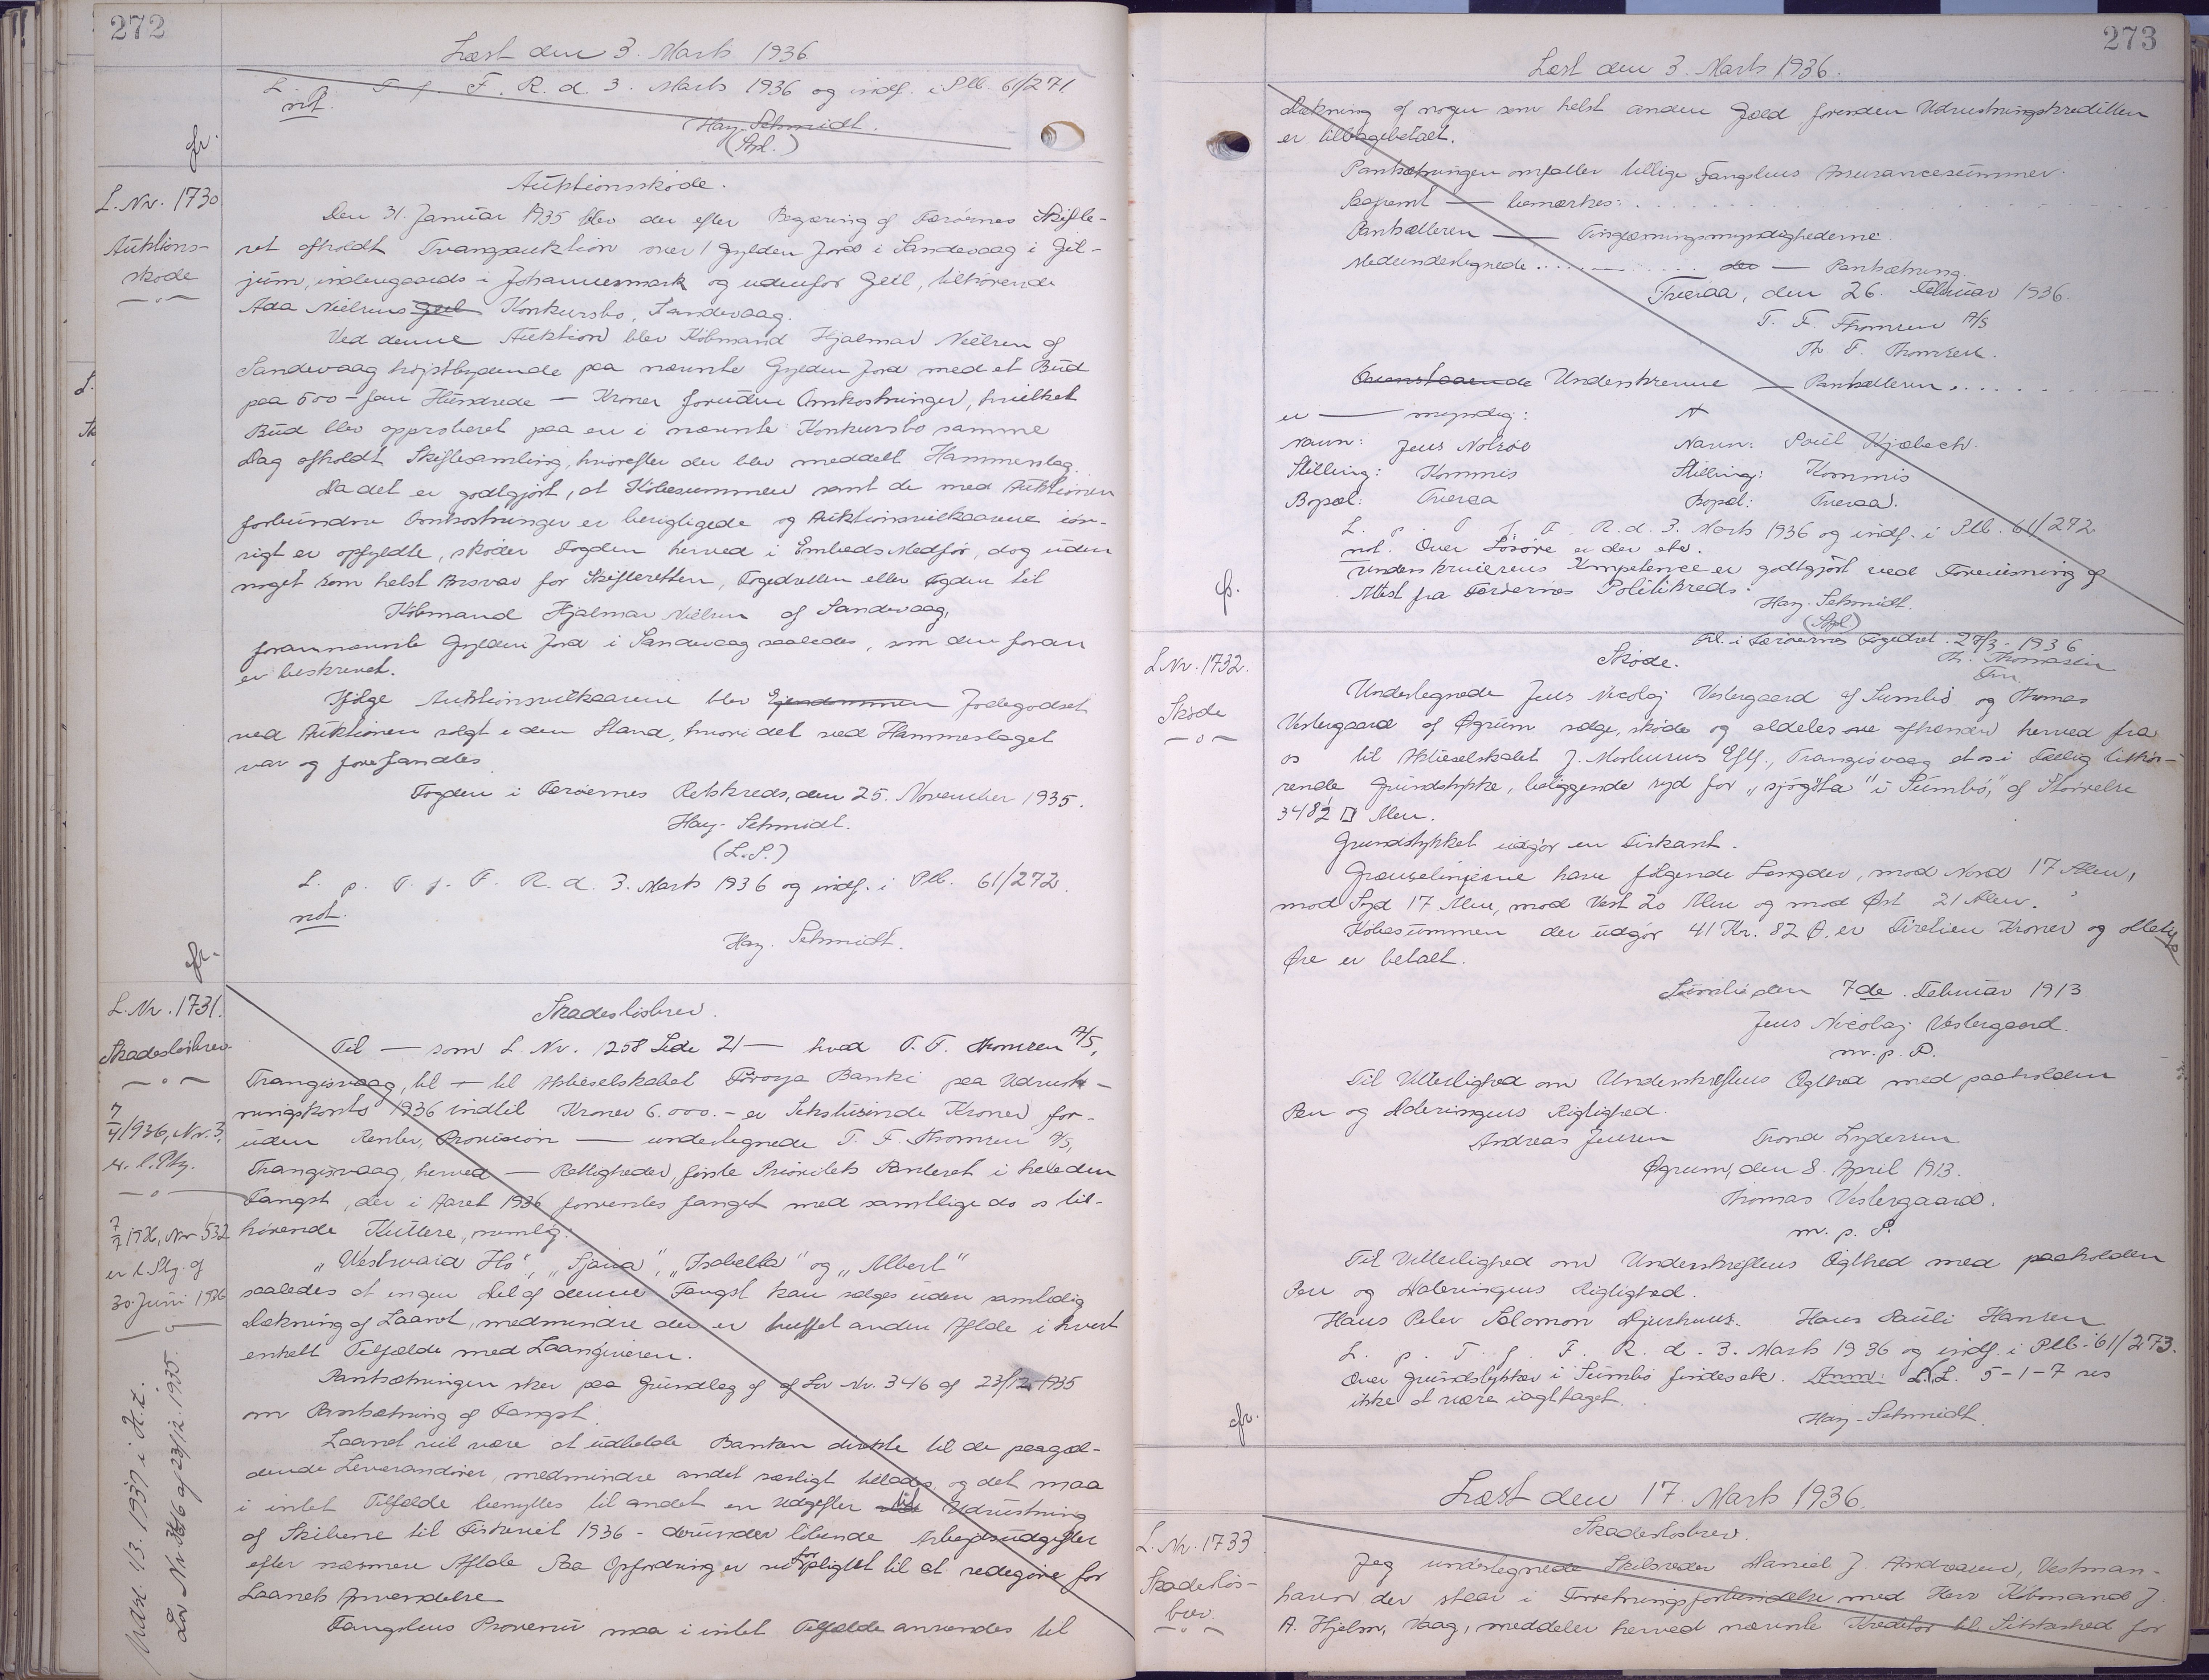 272
Læst den 3. Marts 1936
L. p. T. f. F. R. d. 3. Marts 1936 og indf. i Plb. 61/271
not.
Hay-Schmidt.
(Spl.)
fr.
L. Nr. 1730
Auktions-
skøde
Auktionsskøde.
Den 31. Januar 1935 blev der efter Begæring af Færøernes Skifte-
ret afholdt Tvangsauktion over 1 Gylden Jord i Sandevaag i Git-
jum, indengaards i Johannesmark og udenfor Geil, tilhørende
Ada Nielsens Konkursbo, Sandevaag.
Ved denne Auktion blev Købmand Hjalmar Nielsen af
Sandevaag højstbydende paa nævnte Gylden Jord med et Bud
paa 500 - fem Hundrede - Kroner foruden Omkostninger, hvilket
Bud blev approberet paa en i nævnte Konkursbo samme
Dag afholdt Skiftesamling, hvorefter der blev meddelt Hammerslag.
Da det er godtgjort, at Købesummen samt de med Auktionen
forbundne Omkostninger er berigtigede og Auktionsvilkaarene iøv-
rigt er opfyldte, skøder Fogden herved i Embeds Medfør, dog uden
noget som helst Ansvar for Skifteretten, Fogedretten eller Fogden til
Købmand Hjalmar Nielsen af Sandevaag,
forannævnte Gylden Jord i Sandevaag saaledes, som den foran
er beskrevet.
Ifølge Auktionsvilkaarene blev Ejendommen Jordegodset
ved Auktionen solgt i den Stand, hvori det ved Hammerslaget
var og forefandtes
Fogden i Færøernes Retskreds, den 25. November 1935.
Hay-Schmidt.
(L.S.)
L. p. T. f. F. R. d. 3. Marts 1936 og indf. i Plb. 61/272.
not.
Hay-Schmidt.
fr.
L. Nr. 1731.
Skadesløsbrev.
7/4 1936, Nr. 3,
7/7 1936, Nr 532
er t. Ptg. af
30. Juni 1936
Lov Nr. 346 af 23/12. 1935.
Skadesløsbrev.
Til — som L. Nr. 1258 Side 21 — hvad T. F. Thomsen A/S,
Trangisvaag, til — til Aktieselskabet Føroya Banki paa Udrust-
ningskonto 1936 indtil Kroner 6.000.- er Sekstusinde Kroner for-
uden Renter, Provision — undertegnede T. F. Thomsen A/S,
Trangisvaag, herved — Rettigheder, første Prioritets Panteret i hele den
Fangst, der i Aaret 1936 forventes fanget med samtlige de os til-
hørende Kuttere, nemlig:
"Westward Ho", "Sjana", "Isabella" og "Albert"
saaledes at ingen Del af denne Fangst kan sælges uden samtidig
Dækning af Laanet, medmindre der er truffet anden Aftale i hvert
enkelt Tilfælde med Laangiveren.
Pantsætningen sker paa Grundlag af af Lov Nr. 346 af 23/12 1935
om Pantsætning af Fangst.
Laanet vil være at udbetale Banken direkte til de paagæl-
dende Leverandører, medmindre andet særligt tillades, og det maa
i intet Tilfælde benyttes til andet en Udgifter til Udrustning
af Skibene til Fiskeriet 1936 - derunder løbende Arbejdsudgifter
efter nærmere Aftale Paa Opfordring er vi forpligtet til at redegøre for
Laanets Anvendelse
Fangstens Provenu maa i intet Tilfælde anvendes til
273
Læst den 3. Marts 1936.
Dækning af nogen som helst anden Gæld forinden Udrustningskreditten
er tilbagebetalt.
Pantsætningen omfatter tillige Fangstens Assurancesummer.
Bogført — bemærkes:
Panthaveren — Tinglæsningsmyndighederne.
Medundertegnede ..... — Pantsætning.
Tveraa, den 26. Februar 1936.
T. F. Thomsen A/S
Th. F. Thomsen.
Ovenstaaende Underskrevne — Panthaveren
er — myndig:
Navn: Jens Nolsøe Navn: Poul Kjølbech.
Stilling: Kommis Stilling: Kommis
Bopæl: Tveraa Bopæl: Tveraa.
L. p. T. f. F. R. d. 3. Marts 1936 og indf. i Plb. 61/272
not. Over Løsøre er der etc.
Underskriverens Kompetence er godtgjort ved Forevisning af
Attest fra Færøernes Politikreds.
Hay-Schmidt.
(Spl.)
fr.
L. Nr. 1732.
Skøde
Frl. i Færøernes Fogedret. 27/3 - 1936
Th. Thomasen
Fm.
Skøde.
Undertegnede Jens Nicolaj Vestergaard af Sumbø og Thomas
Vestergaard af Øgrum sælge, skøde og aldeles afhænder herved fra
os til Aktieselskabet J. Mortensens Eftf., Trangisvaag et os i Fællig tilhø-
rende Grundstykke, beliggende syd for "sjógøta" i "Sumbø," af Størrelse
348½ □ Alen.
Grundstykket udgør en Firkant.
Grænselinjerne have følgende Længder, mod Nord 17 Alen,
mod Syd 17 Alen, mod Vest 20 Alen og mod Øst 21 Alen.
Købesummen der udgør 41 Kr. 82 Ø. er Firetien Kroner og
Øre er betalt.
Sumbø den 7de. Februar 1913
Jens Nicolaj Vestergaard.
m. p. P.
Til Vitterlighed om Underskriftens Ægthed med paaholden
Pen og Dateringens Rigtighed.
Andreas Jensen Trond Lydersen
Øgrum, den 8. April 1913.
Thomas Vestergaard.
m. p. P.
Til Vitterlighed om Underskriftens Ægthed med paaholden
Pen og Dateringens Rigtighed.
Hans Peter Salomon Djurhuus. Hans Pauli Hansen
L. p. T. f. F. R. d. 3. Marts 1936 og indf. i Plb. 61/273.
Over Grundstykker i Sumbø findes etc. Anm: D. L. 5-1-7 ses
ikke at være iagttaget.
Hay-Schmidt.
fr.
Læst den 17. Marts 1936.
L. Nr. 1733
Skadesløs-
brev.
Skadesløsbrev.
Jeg undertegnede Skibsreder Daniel J. Andreasen, Vestman-
havn der staar i Forretningsforbindelse med Herr Købmand J.
A. Hjelm, Vaag, meddeler herved nævnte Kreditor til Sikkerhed for